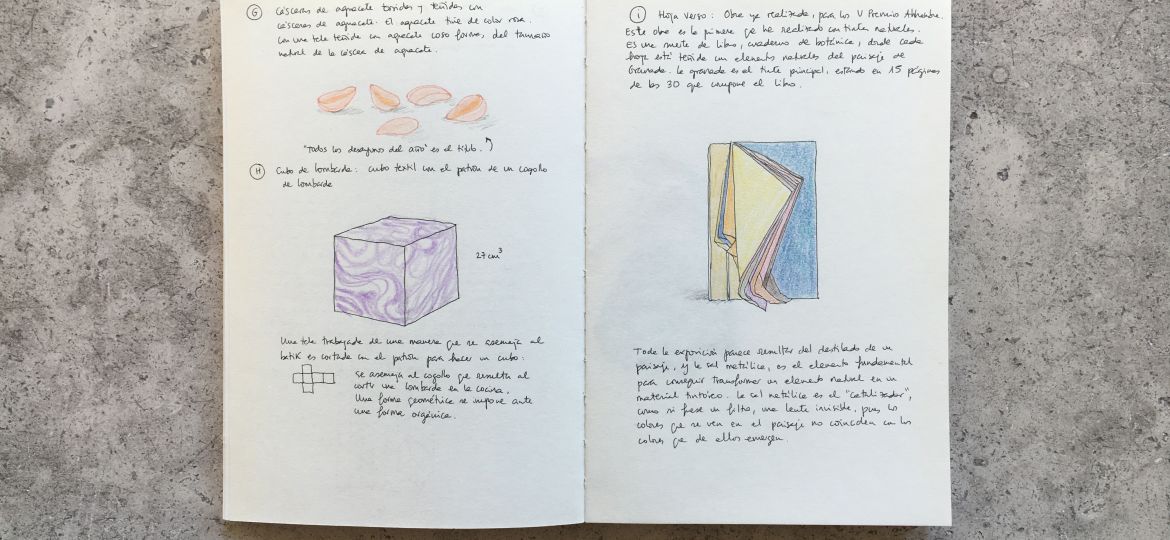 G Cáscaras de aguacate torsidas y teñidas con
cáscaras de aguacate. El aguacate tiñe de color rosa.
Con una tela teñida con aguacate coso formas, del tamaño
natural de la cáscara de aguacate.
"Todos los desayunos del año" es el título.
H Cubo de lombarda: cubo textil con el patrón de un cogollo
de lombarda
27 cm³
Una tela trabajada de una manera que se asemeja al
batik es cortada con el patrón para hacer un cubo:
se asemeja al cogollo que resulta al
cortar una lombarda en la cocina.
Una forma geométrica se impone ante
una forma orgánica.
I Hoja Verso: Obra ya realizada, para los V Premios Alhambra.
Esta obra es la primera que he realizado con tintes naturales.
Es una suerte de libro, cuaderno de botánica, donde cada
hoja está teñida con elementos naturales del paisaje de
Granada. La granada es el tinte principal, estando en 15 páginas
de las 30 que compone el libro.
Toda la exposición parece resultar del destilado de un
paisaje, y la sal metálica, es el elemento fundamental
para conseguir transformar un elemento natural en un
material tintóreo. La sal metálica es el "catalizador",
como si fuese un filtro, una lente invisible, pues los
colores que se ven en el paisaje no coinciden con los
colores que de ellos emergen.